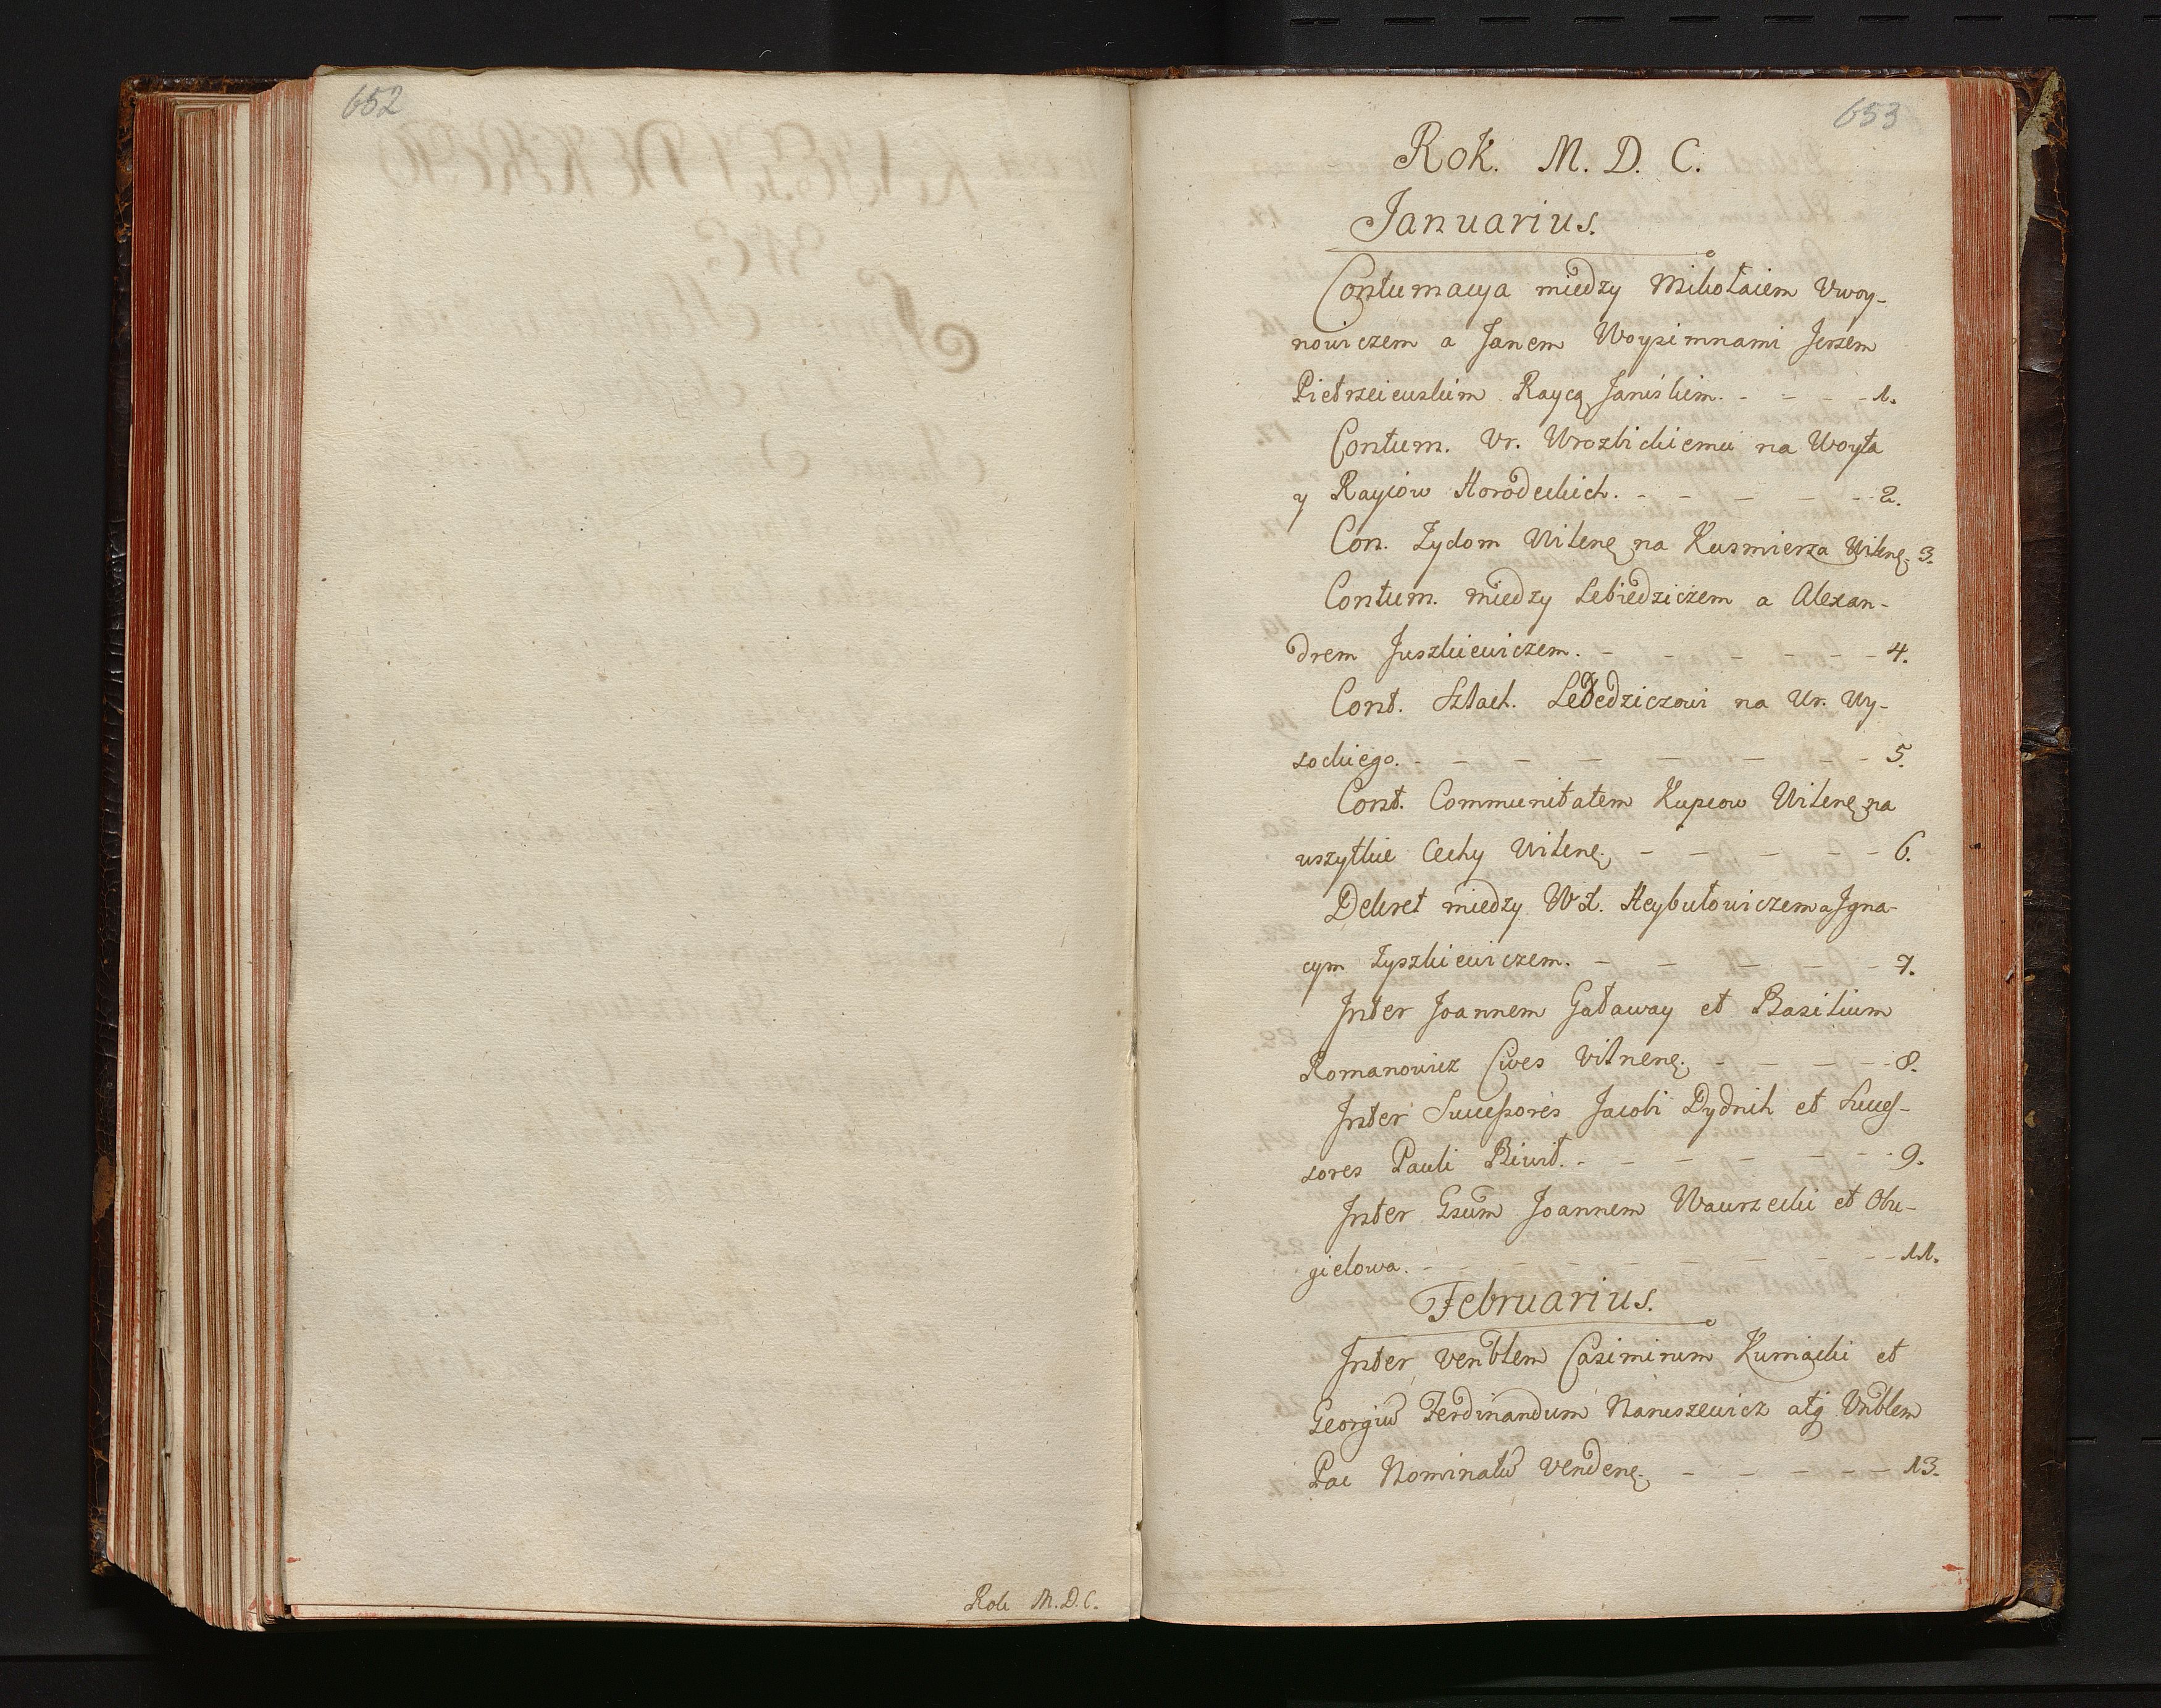 652
Rok M.D.C.
653
Rok. M. D. C.
Januarius.
Contumacya miedzy Mikołaiem Uwoy-
nowiczem a Janem Woysimnami Jerzem
Pietrzeiewskim Raycą Janiskim. - - - - 1.
Contum. Ur. Wrozbickiemu na Woyta
y Rayców Horodeckich. - - - - - 2.
Con. Zydom Wilenę na Kusmierza Wilenę. 3.
Contum. miedzy Lebiedziczem a Alexan-
drem Juszkiewiczem. - - - - - - 4.
Cont. Szlach. Lebedziczowi na Ur. Wy-
sockiego. - - - - - - - - 5.
Cont. Communitatem Kupcow Wilenę na
wszytkie Cechy Wilenę. - - - - - 6.
Dekret miedzy Wł. Heybułowiczem a Igna-
cym Zyszkiewiczem. - - - - - 7.
Inter Joannem Gataway et Basilium
Romanowicz Cives Vilnenę. - - - - - 8.
Inter Successores Jacobi Dydnih et Succes-
sores Pauli Biwit. - - - - - - - 9.
Inter Gsum Joannem Wawrzecki et Obu-
gielowa. - - - - - - - - - 11.
Februarius.
Inter Venblem Casimirum Kumiącki et
Georgiū Ferdinandum Naruszewicz atq Vnblem
Pac Nominatū Vendenę. - - - - - 13.